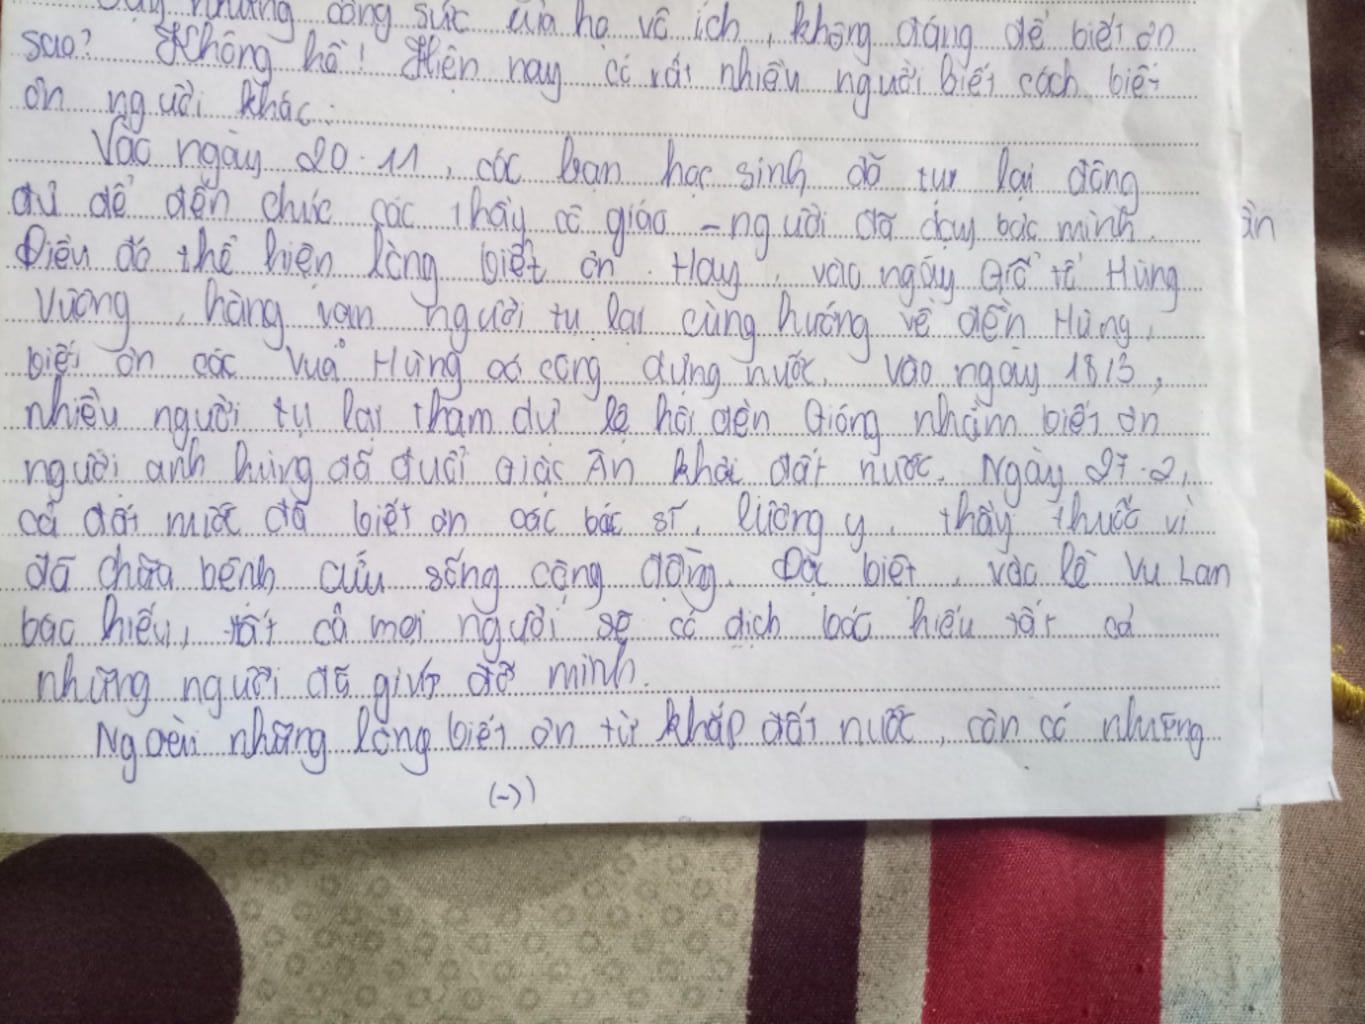 những công sức của họ vô ích, không đáng để biết ơn
sao? Không hề! Hiện nay có rất nhiều người biết cách biết
ơn người khác.
Vào ngày 20.11, các bạn học sinh đã tụ lại đông
đủ để đến chúc các thầy cô giáo - người đã dạy bảo mình.
ân
Điều đó thể hiện lòng biết ơn. Hay, vào ngày Giỗ tổ Hùng
Vương, hàng vạn người tụ lại cùng hướng về đền Hùng,
biết ơn các Vua Hùng có công dựng nước. Vào ngày
nhiều người tụ lại tham dự lễ hội đền Gióng nhằm biết ơn
người anh hùng đã đuổi giặc Ân khỏi đất nước. Ngày 27.2,
cả đất nước đã biết ơn các bác sĩ, lương y, thầy thuốc vì
đã chữa bệnh cứu sống cộng đồng. Đặc biệt, vào lễ Vu Lan
báo hiếu, tất cả mọi người sẽ có dịch báo hiếu tất cả
những người đã giúp đỡ mình.
Ngoài những lòng biết ơn từ khắp đất nước, còn có những
(→)